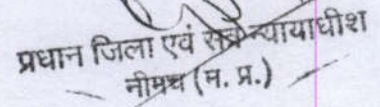 प्रधान जिला एवं सत्र न्यायाधीश
नीमच (म. प्र.)